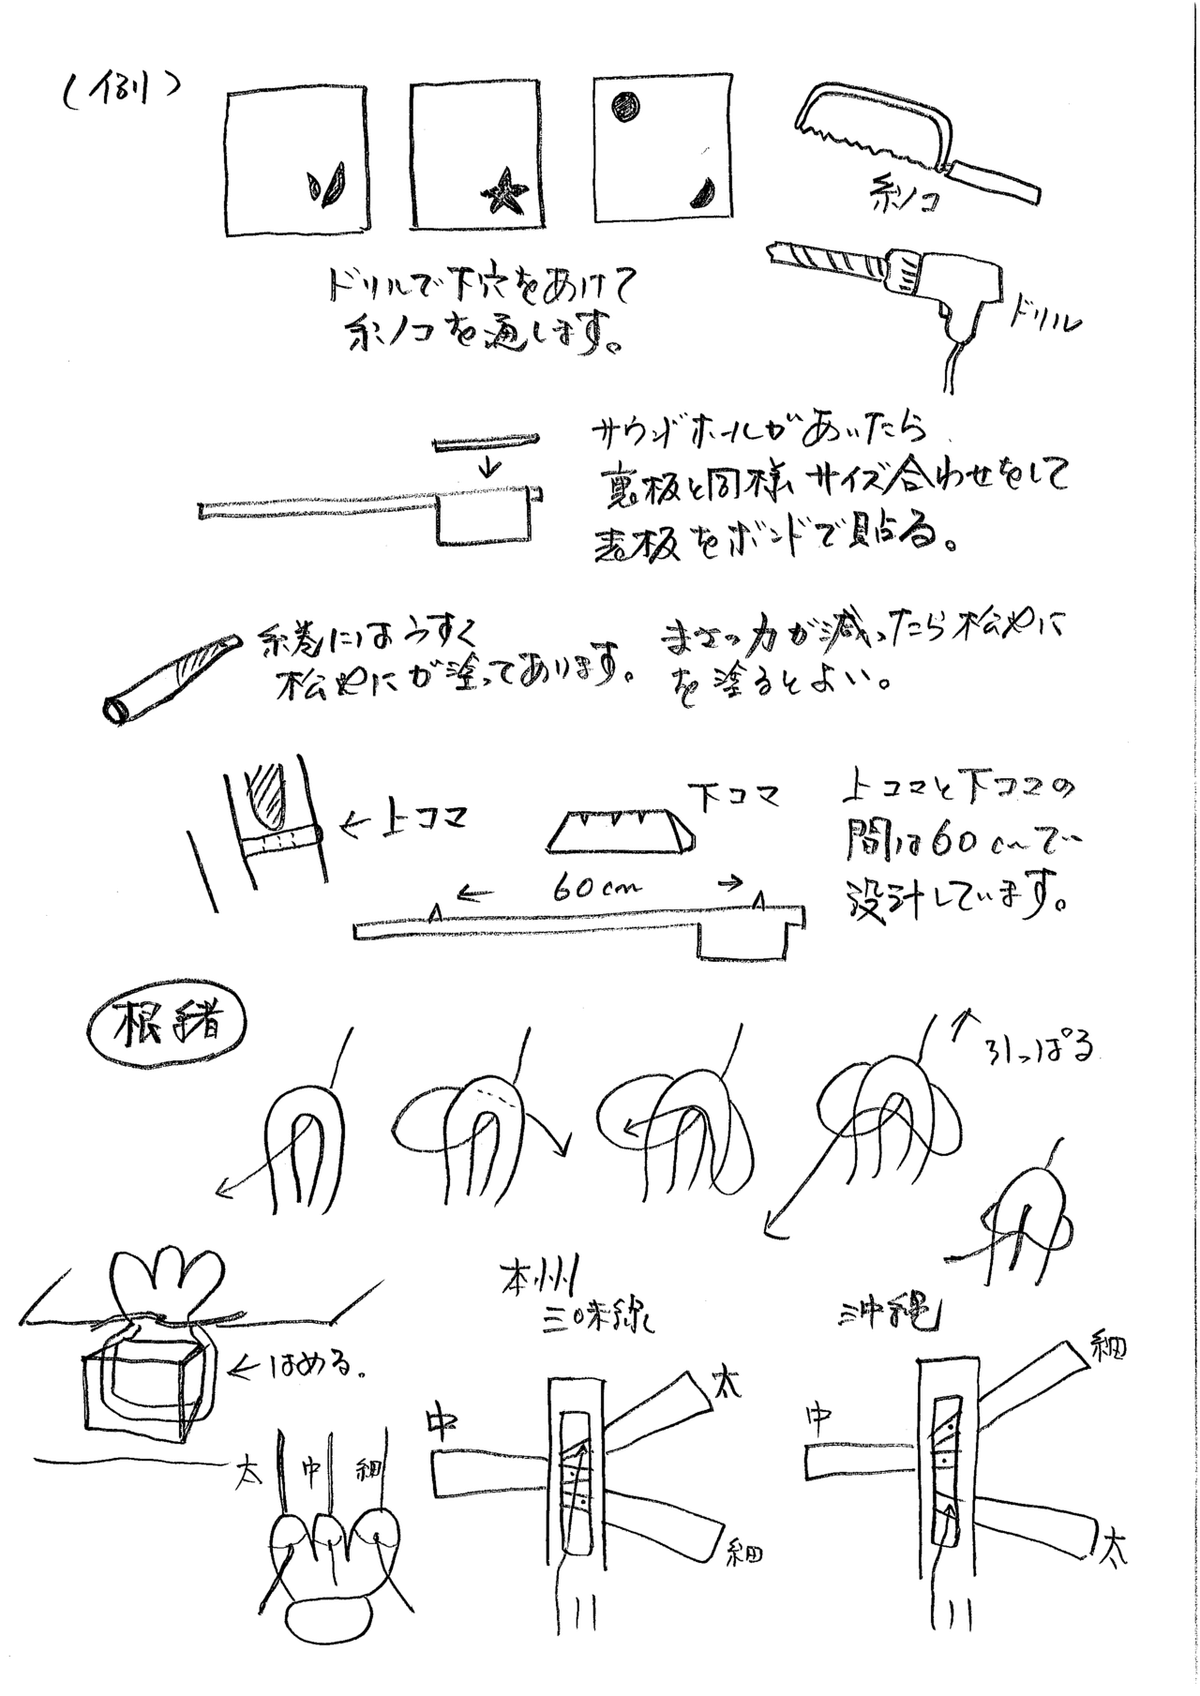 （例）
糸ノコ
ドリルで下穴をあけて
糸ノコを通します。
ドリル
サウンドホールがあいたら
裏板と同様サイズ合わせをして
表板をボンドで貼る。
糸巻にはうすく
松やにが塗ってあります。
まさつ力が減ったら松やに
を塗るとよい。
←上コマ
下コマ
← 60cm →
上コマと下コマの
間は60cmで
設計しています。
根緒
引っぱる
←はめる。
太 中 細
本州
三味線
中
太
細
沖縄
中
細
太